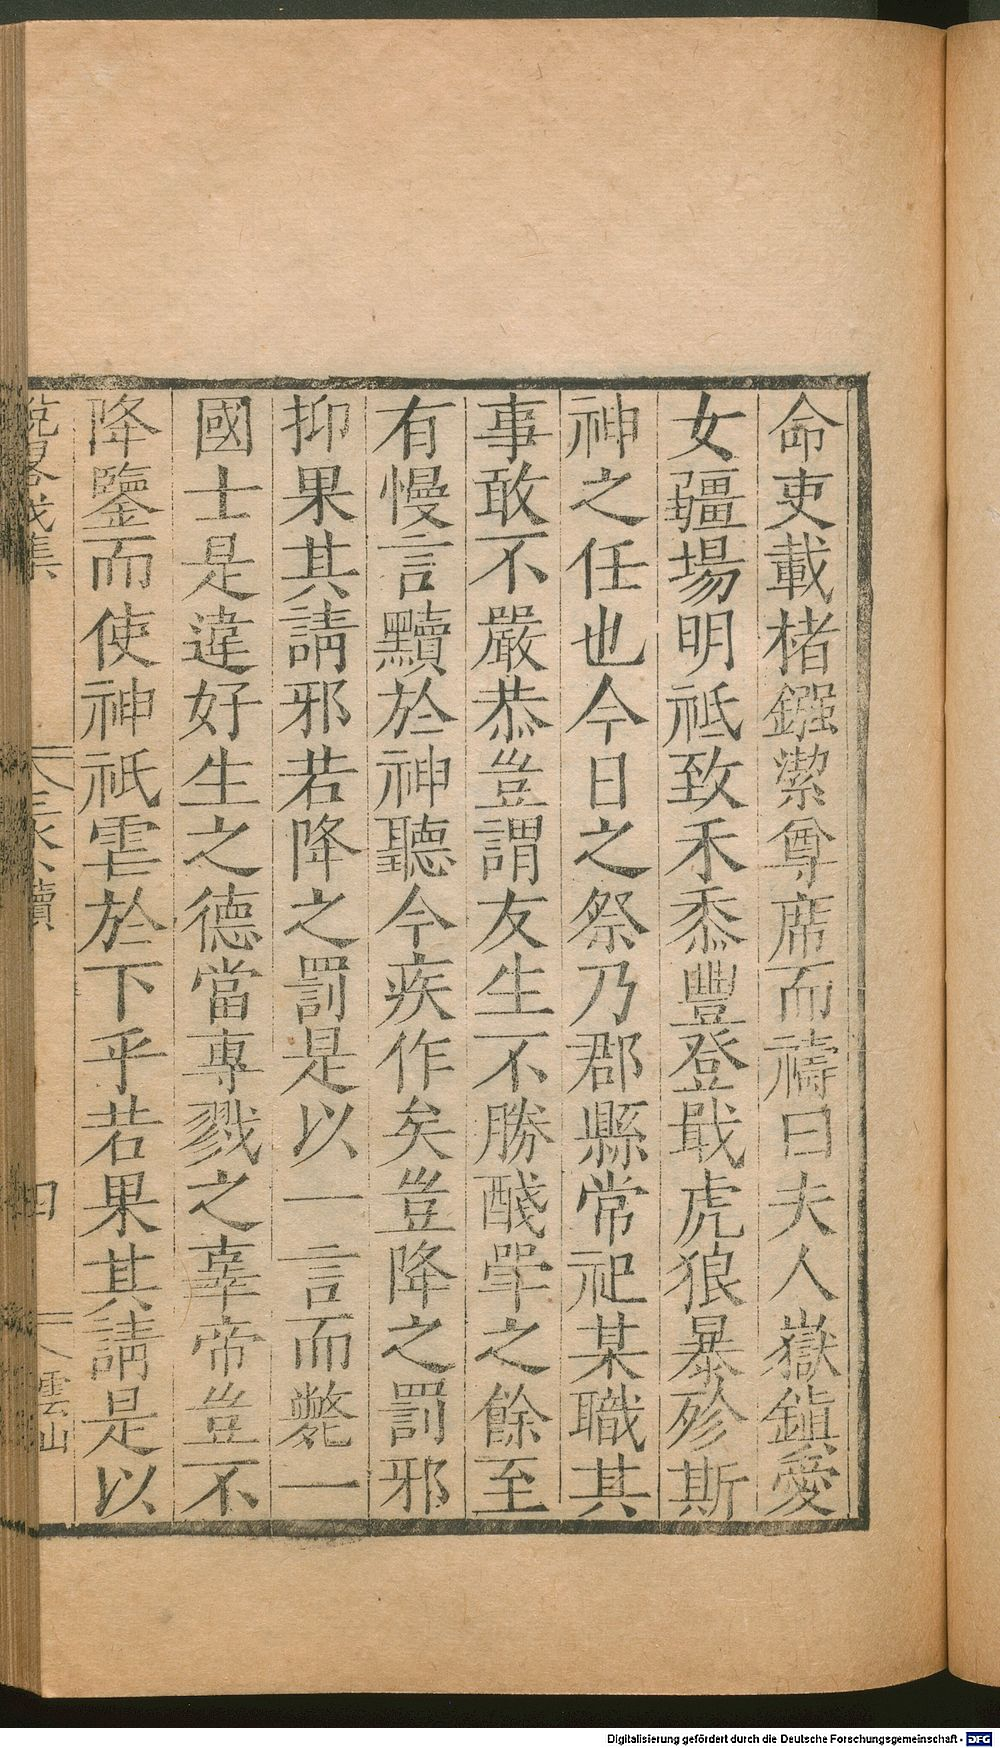 命吏載楮鏹潔尊席而禱曰夫人嶽鎮愛
女疆場明祗致禾黍豐登戢虎狼暴殄斯
神之任也今日之祭乃郡縣常祀某職其
事敢不嚴恭豈謂友生不勝醆斝之餘至
有慢言黷於神聽今疾作矣豈降之罰邪
抑果其請邪若降之罰是以一言而斃一
國士是違好生之德當專戮之辜帝豈不
降鑒而使神祇虐於下乎若果其請是以
集 四 雲山
Digitalisierung gefördert durch die Deutsche Forschungsgemeinschaft - DFG